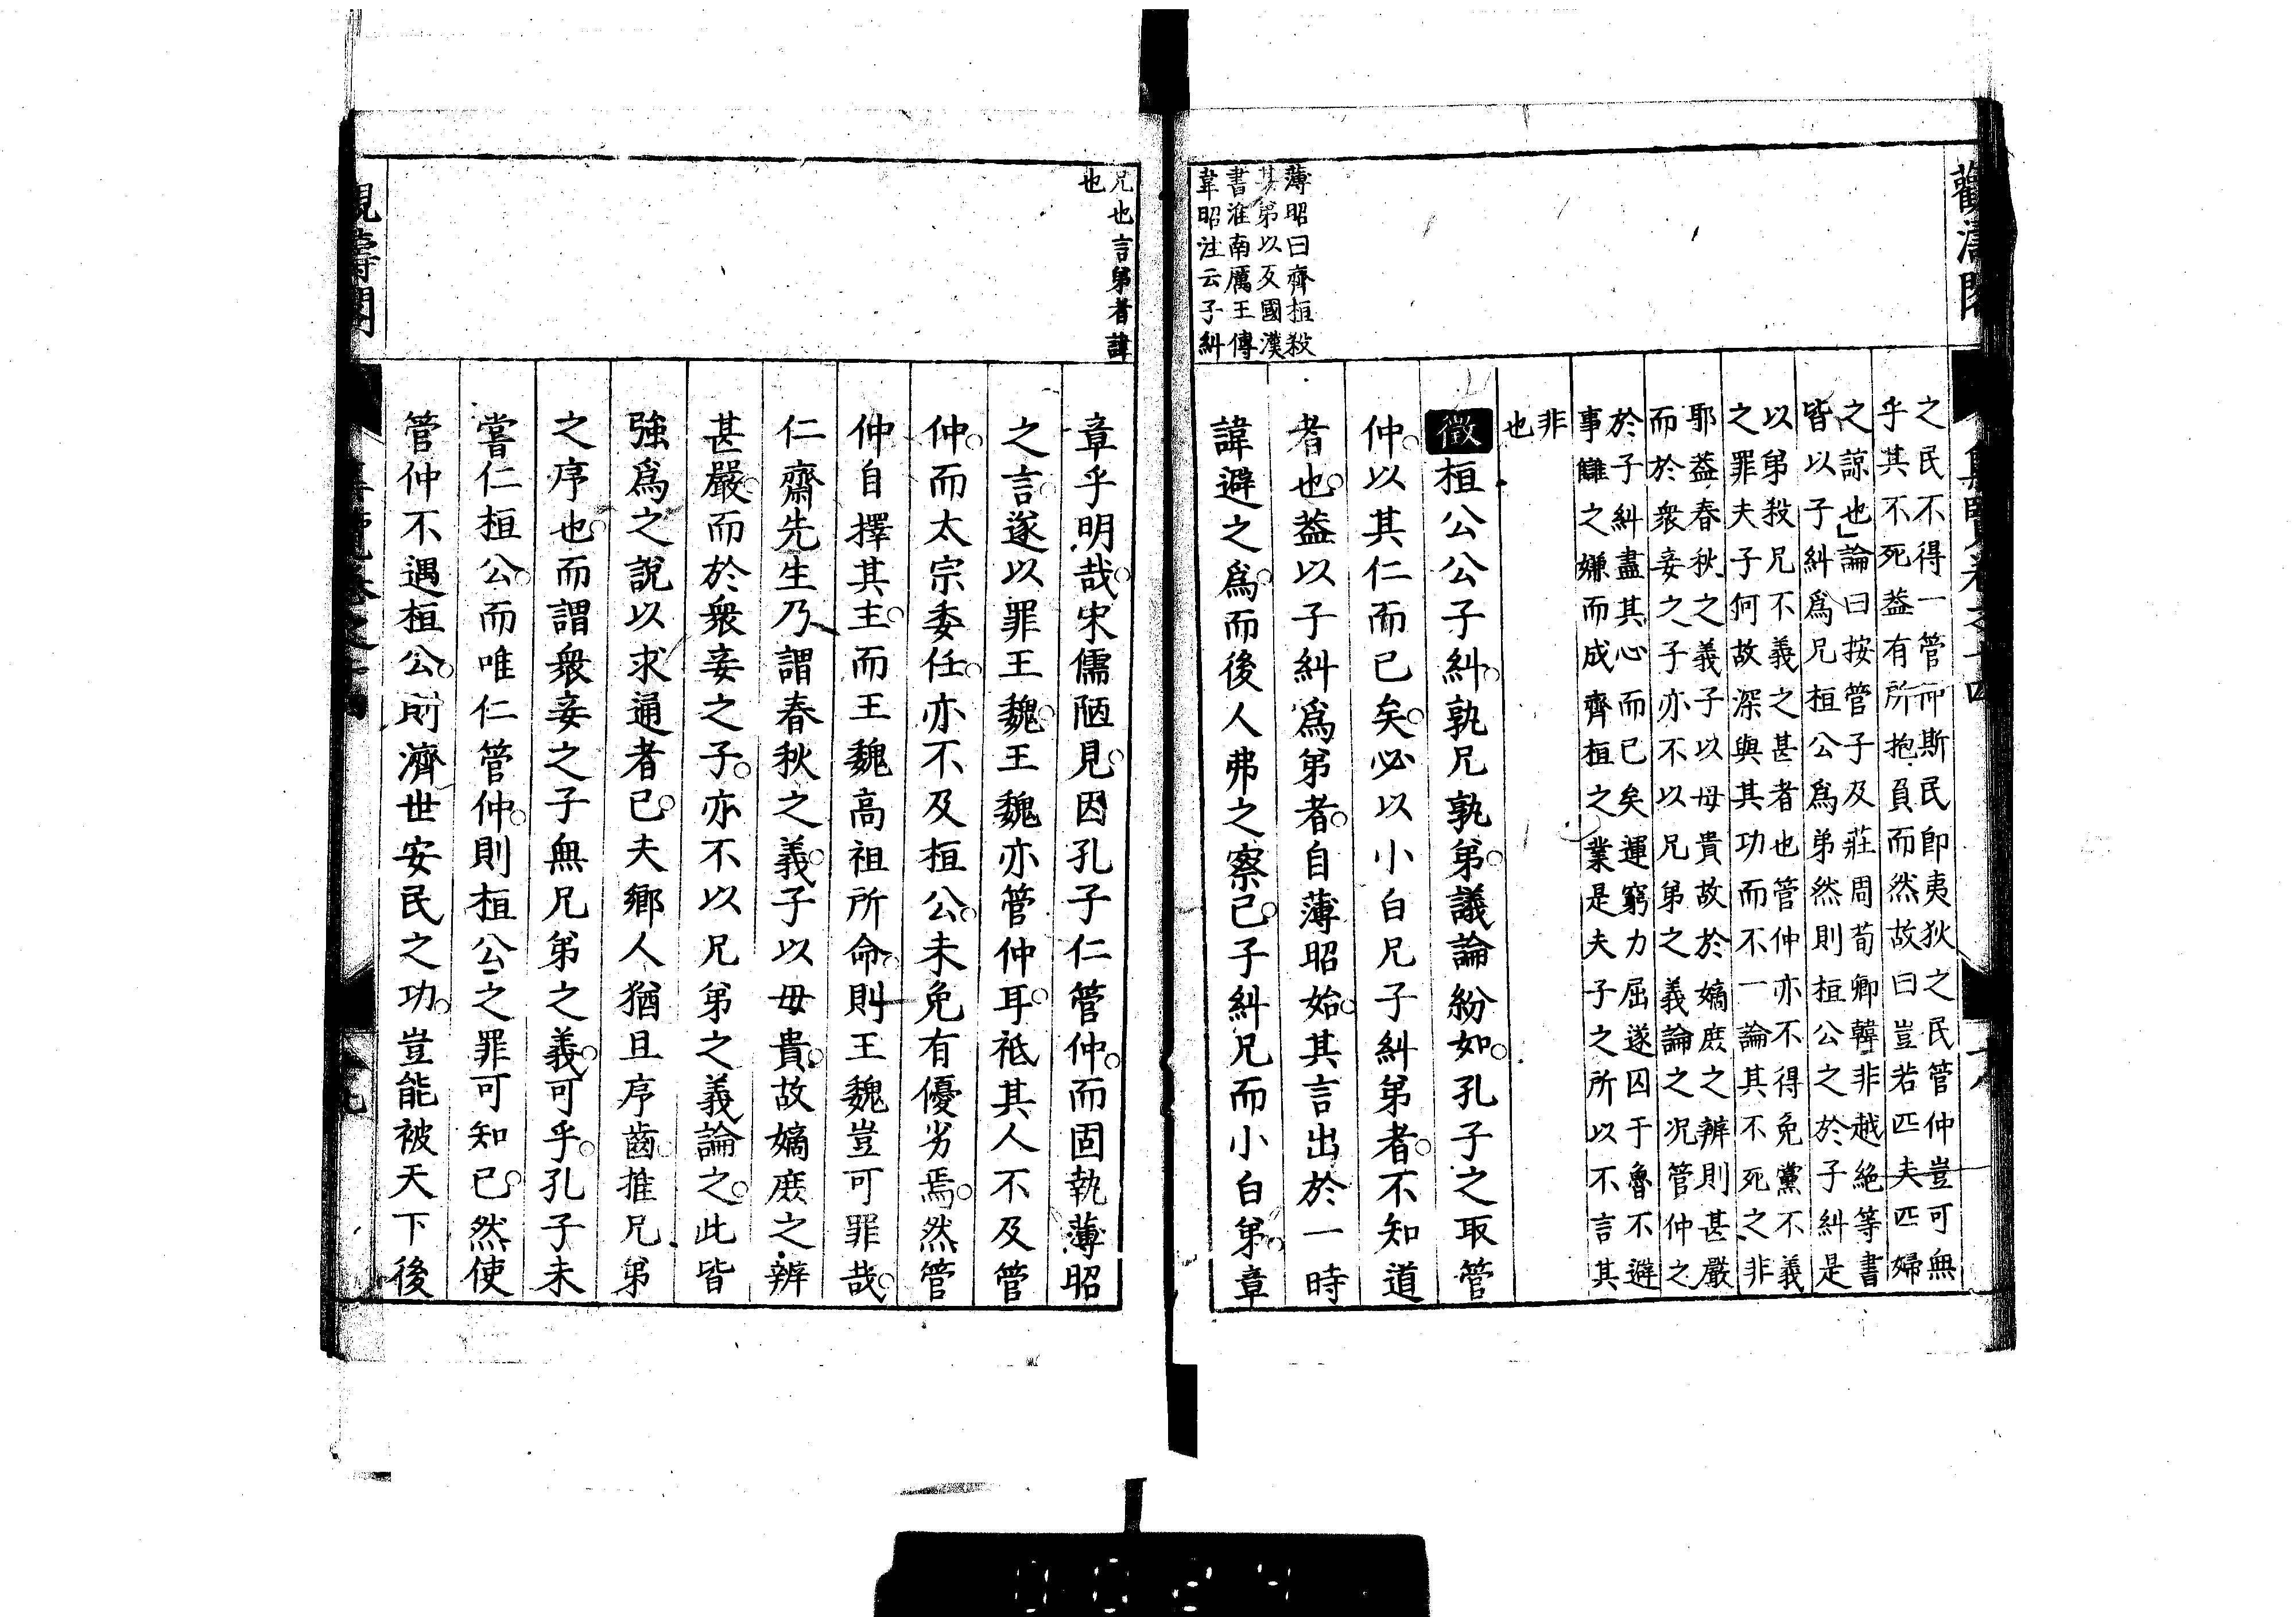 觀濤閣
之民不得一管仲斯民即夷狄之民管仲豈可無
乎其不死蓋有所抱負而然故曰豈若匹夫匹婦
之諒也論曰按管子及莊周荀卿韓非越絕等書
皆以子糾爲兄桓公爲弟然則桓公之於子糾是
以弟殺兄不義之甚者也管仲亦不得免黨不義
之罪夫子何故深與其功而不一論其不死之非
耶蓋春秋之義子以母貴故於嫡庶之辨則甚嚴
而於衆妾之子亦不以兄弟之義論之况管仲之
於子糾盡其心而已矣運窮力屈遂囚于魯不避
事讎之嫌而成齊桓之業是夫子之所以不言其
非
也
徵桓公公子糾孰兄孰弟議論紛如孔子之取管
仲以其仁而已矣必以小白兄子糾弟者不知道
者也蓋以子糾爲弟者自薄昭始其言出於一時
諱避之爲而後人弗之察已子糾兄而小白弟章
薄昭曰齊桓殺
其弟以反國漢
書淮南厲王傳
韋昭注云子糾
兄也言弟者諱
也
章乎明哉宋儒陋見因孔子仁管仲而固執薄昭
之言遂以罪王魏王魏亦管仲耳祗其人不及管
仲而太宗委任亦不及桓公未免有優劣焉然管
仲自擇其主而王魏高祖所命則王魏豈可罪哉
仁齋先生乃謂春秋之義子以母貴故嫡庶之辨
甚嚴而於衆妾之子亦不以兄弟之義論之此皆
強爲之說以求通者已夫鄉人猶且序齒推兄弟
之序也而謂衆妾之子無兄弟之義可乎孔子未
嘗仁桓公而唯仁管仲則桓公之罪可知已然使
管仲不遇桓公則濟世安民之功豈能被天下後